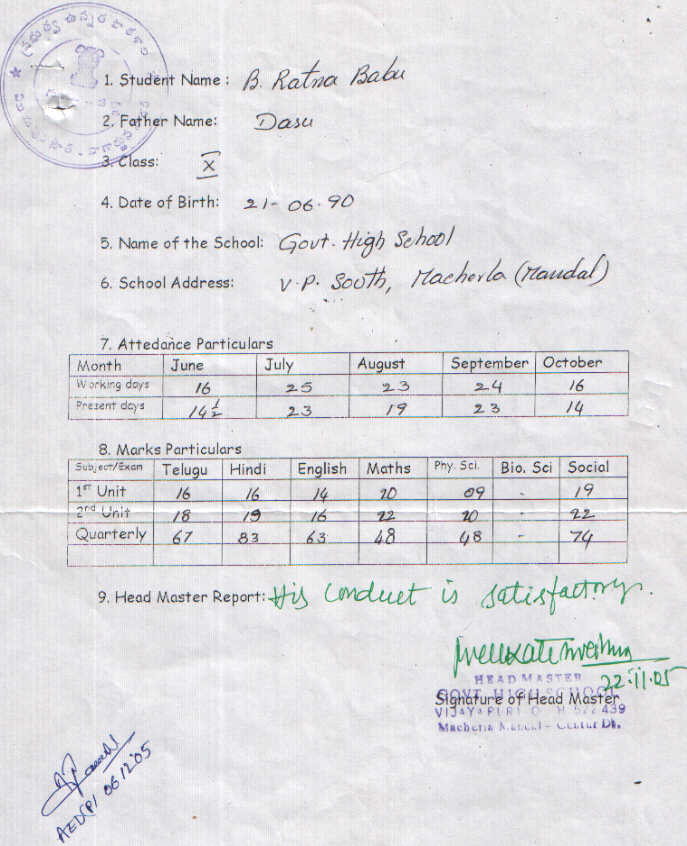 1. Student Name : B. Ratna Babu
2. Father Name: Dasu
3. Class: X
4. Date of Birth: 21-06-90
5. Name of the School: Govt. High School
6. School Address: V.P. South, Macherla (Mandal)
7. Attedance Particulars
Month June July August September October
Working days 16 25 23 24 16
Present days 14½ 23 19 23 14
8. Marks Particulars
Subject/Exam Telugu Hindi English Maths Phy. Sci. Bio. Sci Social
1st Unit 16 16 14 20 09 - 19
2nd Unit 18 19 16 22 20 - 22
Quarterly 67 83 63 48 48 - 74
9. Head Master Report: His conduct is satisfactory.
22.11.05
HEAD MASTER
GOVT. HIGH SCHOOL
Signature of Head Master
06.12.05